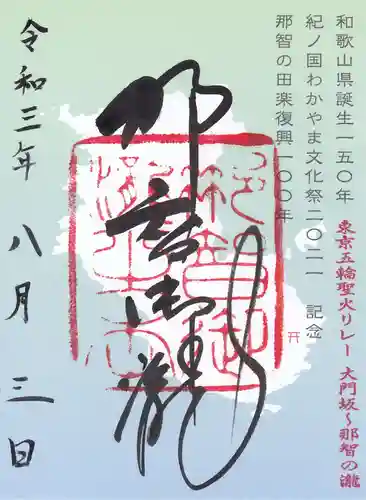 和歌山県誕生一五〇年
紀ノ国わかやま文化祭二〇二一　記念
那智の田楽復興一〇〇年
東京五輪聖火リレー　大門坂～那智の瀧
那智御瀧
令和三年　八月　三日